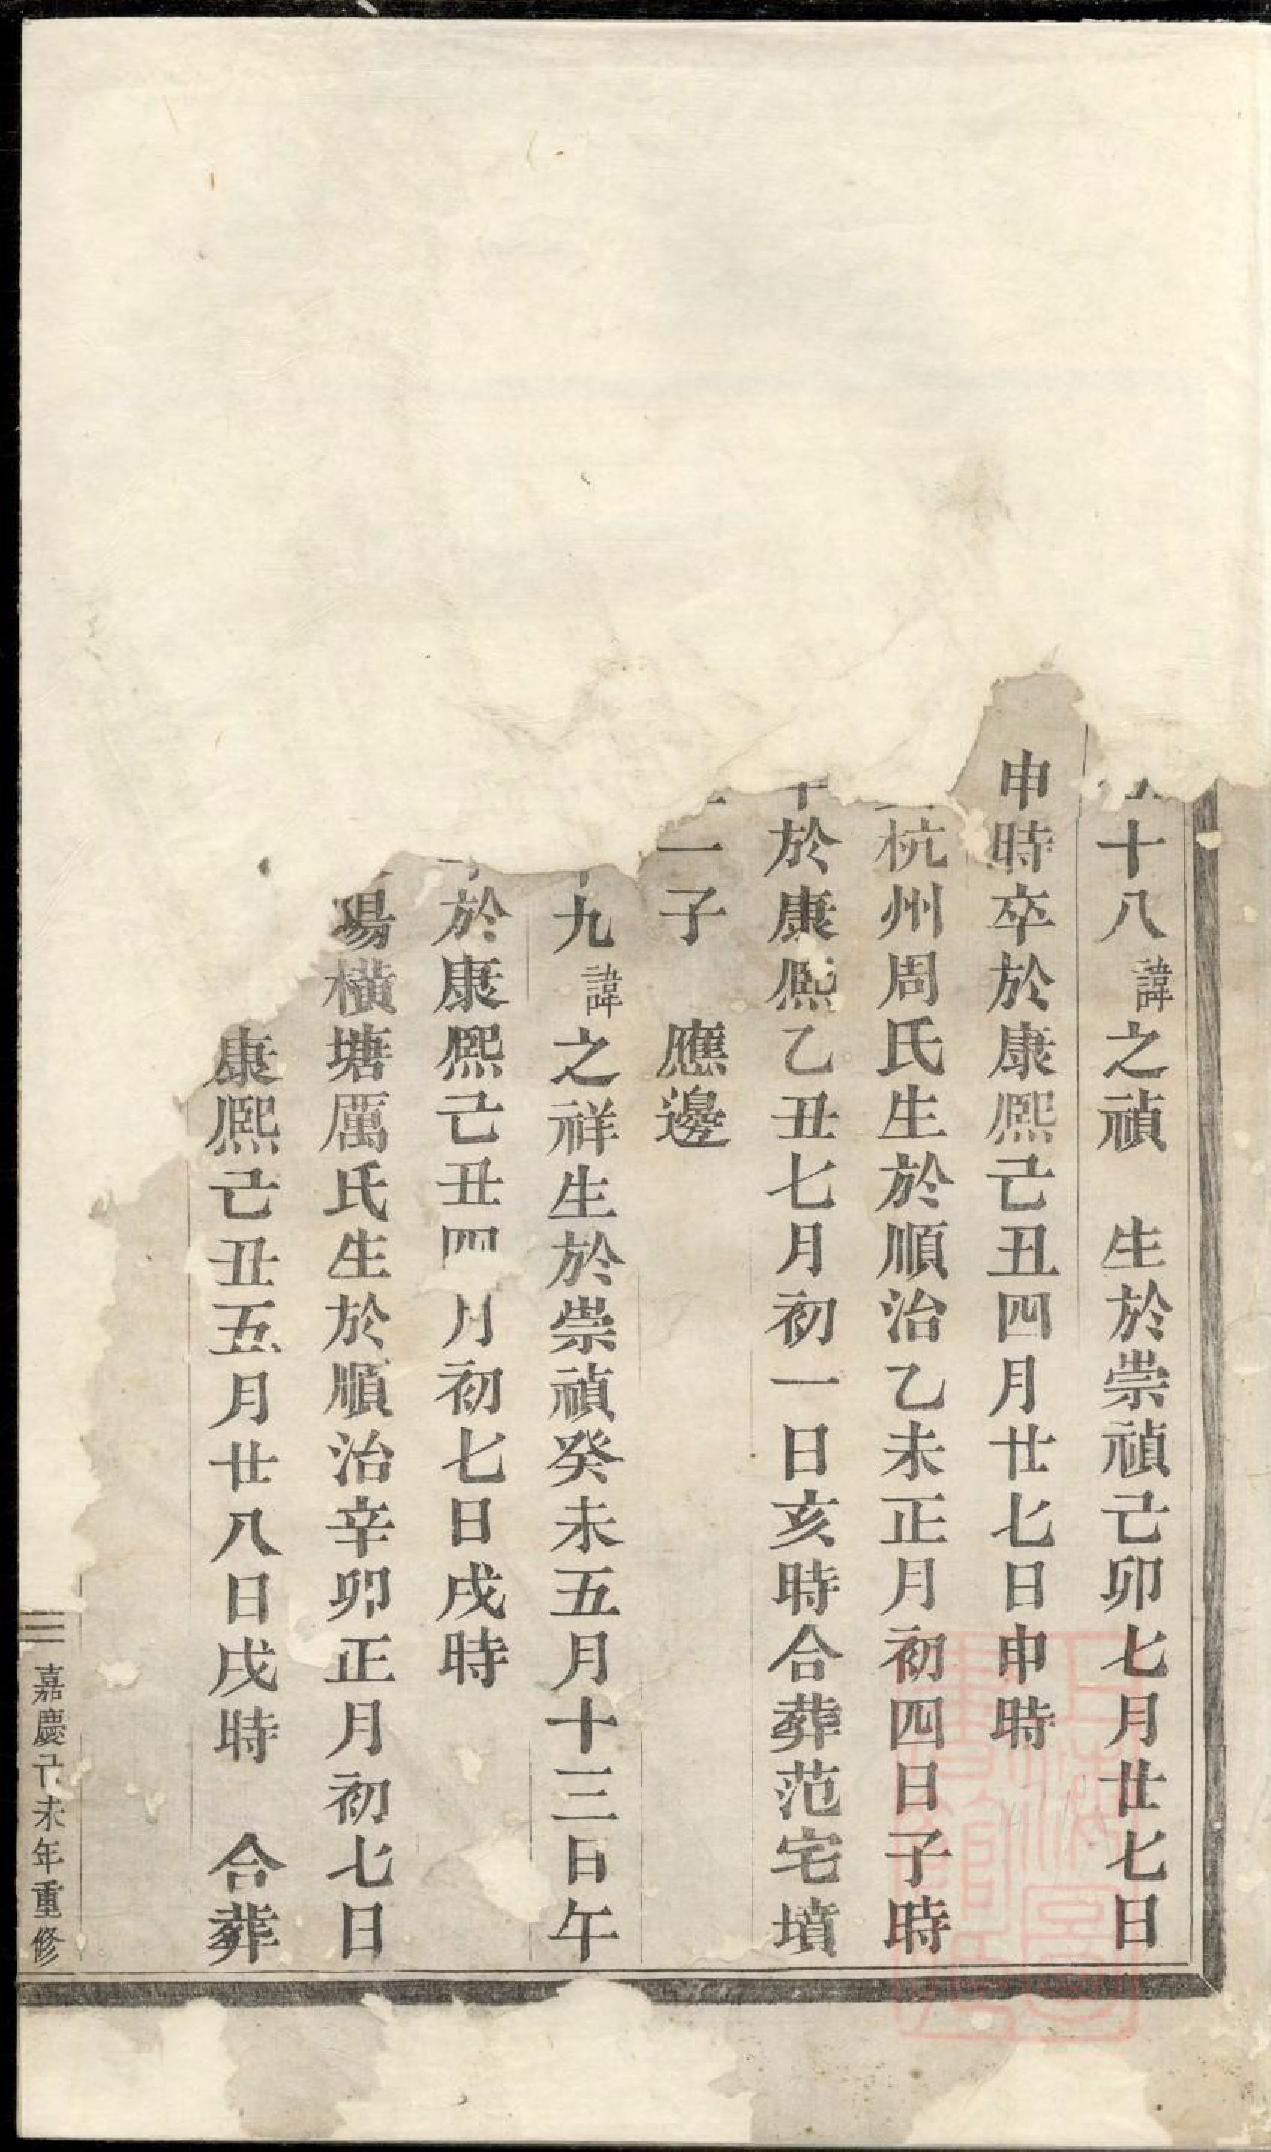 十八諱之禎　生於崇禎己卯七月廿七日
申時卒於康熙己丑四月廿七日申時
杭州周氏生於順治乙未正月初四日子時
於康熙乙丑七月初一日亥時合葬范宅墳
一子　應邊
九諱之祥生於崇禎癸未五月十三日午
於康熙己丑四月初七日戌時
陽橫塘厲氏生於順治辛卯正月初七日
康熙己丑五月廿八日戌時　合葬
三　嘉慶己未年重修
上海圖書館藏